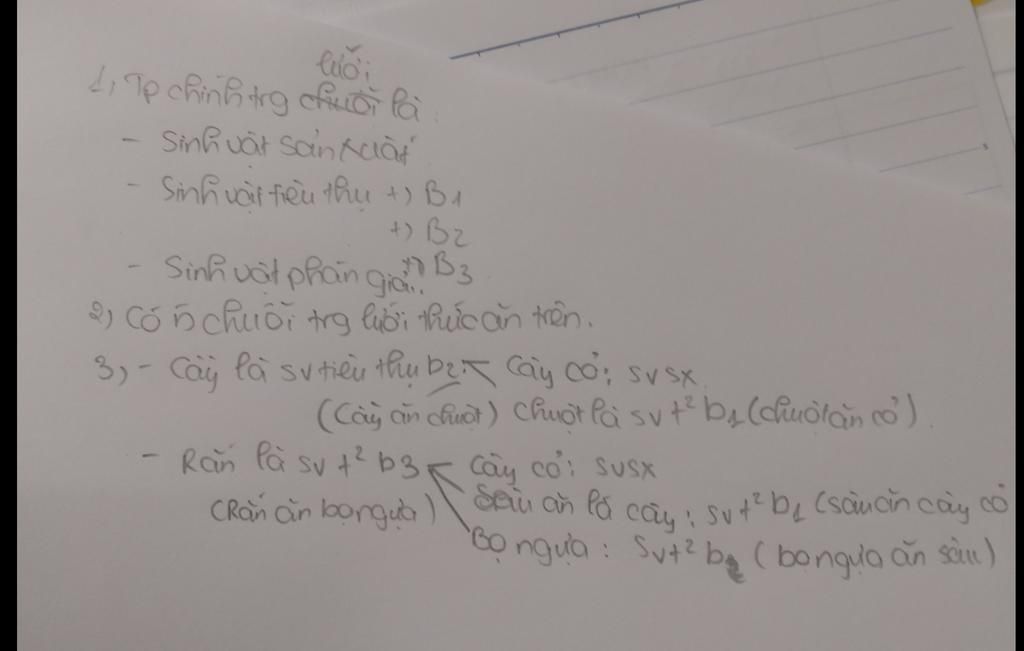 lưới
1, Tp chính trg chuỗi là:
- Sinh vật sản xuất
- Sinh vật tiêu thụ +) B1
+) B2
+) B3
- Sinh vật phân giải.
2, Có n chuỗi trg lưới thức ăn trên.
3, - Cầy là sv tiêu thụ b2: Cây cỏ: svsx
(Cầy ăn chuột) Chuột là sv t² b1 (chuột ăn cỏ).
- Rắn là sv t² b3 Cây cỏ: svsx
(Rắn ăn bọ ngựa) Sâu ăn lá cây: sv t² b1 (sâu ăn cây cỏ
Bọ ngựa: sv t² b2 (bọ ngựa ăn sâu)